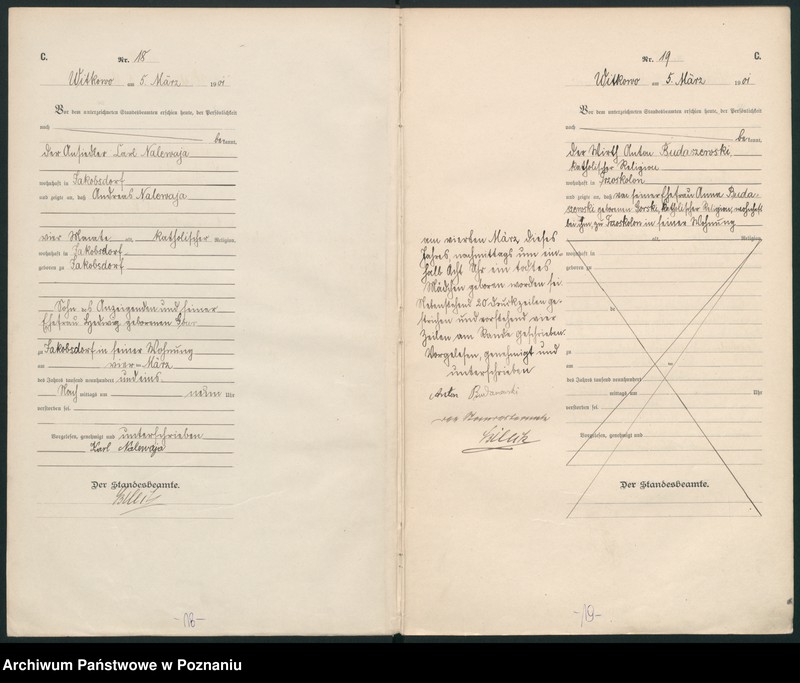 C.
Nr. 18
Witkowo am 5. März 1901
Vor dem unterzeichneten Standesbeamten erschien heute, der Persönlichkeit
nach
bekannt,
der Ansiedler Carl Nalewaja
wohnhaft in Jakobsdorf
und zeigte an, daß Andreas Nalewaja
vier Monate alt, katholischer Religion,
wohnhaft in Jakobsdorf
geboren zu Jakobsdorf
Sohn des Anzeigenden und seiner
Ehefrau Hedwig geborenen
zu Jakobsdorf in seiner Wohnung
am vier März
des Jahres tausend neunhundert und eins
Nachmittags um neun Uhr
verstorben sei.
Vorgelesen, genehmigt und unterschrieben
Karl Nalewaja
Der Standesbeamte.
-18-
Nr. 19
C.
Witkowo am 5. März 1901
Vor dem unterzeichneten Standesbeamten erschien heute, der Persönlichkeit
nach
bekannt,
der Wirth Anton Budaszewski,
katholischer Religion
wohnhaft in
und zeigte an, daß von seiner Ehefrau Anna Buda-
szewski geborenen Gorski, katholischer Religion, wohnhaft
bei ihm, zu in seiner Wohnung
am vierten März dieses
Jahres, nachmittags um ein-
halb acht Uhr ein todtes
Mädchen geboren worden sei.
Nebenstehend 20 Druckzeilen ge-
strichen und vorstehend vier
Zeilen am Rande geschrieben.
Vorgelesen, genehmigt und
unterschrieben
Anton
Der Standesbeamte
alt, Religion,
wohnhaft in
geboren zu
de
zu
am
des Jahres tausend neunhundert
mittags um Uhr
verstorben sei.
Vorgelesen, genehmigt und
Der Standesbeamte.
-19-
Archiwum Państwowe w Poznaniu